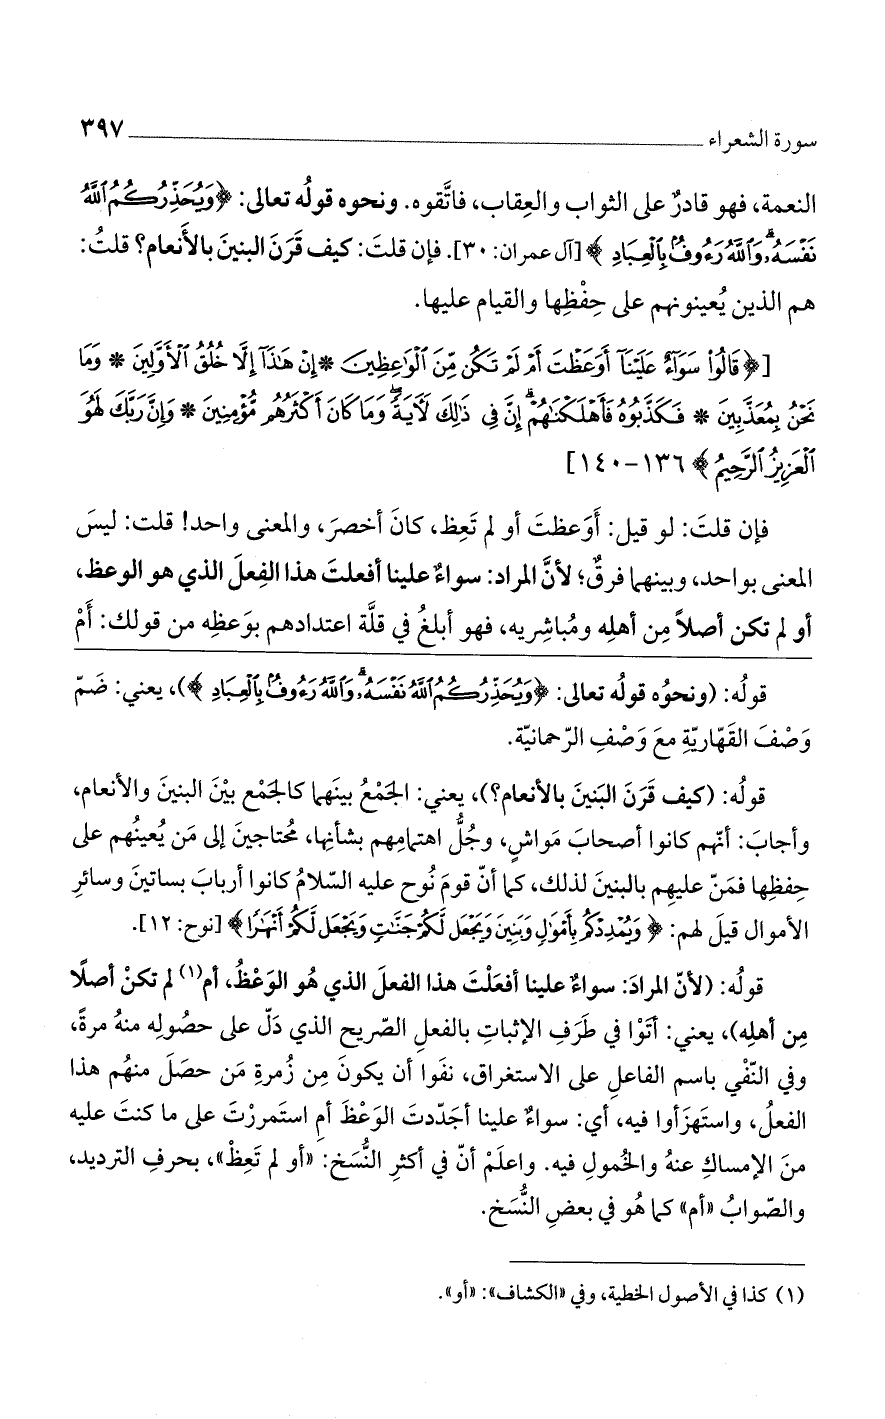 سورة الشعراء ٣٩٧
النعمة، فهو قادرٌ على الثواب والعِقاب، فاتَّقوه. ونحوه قولُه تعالى: ﴿وَيُحَذِّرُكُمُ ٱللَّهُ
نَفْسَهُۥ وَٱللَّهُ رَءُوفٌۢ بِٱلْعِبَادِ﴾ [آل عمران: ٣٠]. فإن قلتَ: كيف قَرَنَ البنينَ بالأَنعام؟ قلتُ:
هم الذين يُعينونهم على حِفْظِها والقيام عليها.
[﴿قَالُوا۟ سَوَآءٌ عَلَيْنَآ أَوَعَظْتَ أَمْ لَمْ تَكُن مِّنَ ٱلْوَٰعِظِينَ * إِنْ هَٰذَآ إِلَّا خُلُقُ ٱلْأَوَّلِينَ * وَمَا
نَحْنُ بِمُعَذَّبِينَ * فَكَذَّبُوهُ فَأَهْلَكْنَٰهُمْ ۗ إِنَّ فِى ذَٰلِكَ لَآيَةً ۖ وَمَا كَانَ أَكْثَرُهُم مُّؤْمِنِينَ * وَإِنَّ رَبَّكَ لَهُوَ
ٱلْعَزِيزُ ٱلرَّحِيمُ﴾ ١٣٦-١٤٠]
فإن قلتَ: لو قيل: أَوَعظتَ أو لم تَعِظ، كانَ أخصرَ، والمعنى واحد! قلت: ليسَ
المعنى بواحد، وبينهما فرقٌ؛ لأنَّ المراد: سواءٌ علينا أفعلتَ هذا الفِعلَ الذي هو الوعظ،
أو لم تكن أصلاً مِن أهلِه ومُباشِريه، فهو أبلغُ في قلَّة اعتدادهم بوَعظِه من قولك: أَمْ
قولُه: (ونحوُه قولُه تعالى: ﴿وَيُحَذِّرُكُمُ ٱللَّهُ نَفْسَهُۥ ۗ وَٱللَّهُ رَءُوفٌۢ بِٱلْعِبَادِ﴾)، يعني: ضَمّ
وَصْفَ القَهّاريّةِ معَ وَصْفِ الرّحمانيّة.
قولُه: (كيف قَرَنَ البَنينَ بالأنعام؟)، يعني: الجَمْعُ بينَهما كالجَمْع بيْنَ البنينَ والأنعام،
وأجابَ: أنّهم كانوا أصحابَ مَواشٍ، وجُلُّ اهتمامِهم بشأنِها، مُحتاجينَ إلى مَن يُعينُهم على
حِفظِها فمَنّ عليهِم بالبنينَ لذلك، كما أنّ قومَ نُوح عليه السّلامُ كانوا أربابَ بساتينَ وسائرِ
الأموال قيلَ لهم: ﴿وَيُمْدِدْكُم بِأَمْوَٰلٍ وَبَنِينَ وَيَجْعَل لَّكُمْ جَنَّٰتٍ وَيَجْعَل لَّكُمْ أَنْهَٰرًا﴾ [نوح: ١٢].
قولُه: (لأنّ المرادَ: سواءٌ علينا أفعَلْتَ هذا الفعلَ الذي هُو الوَعْظُ، أم(١) لم تكنْ أصلًا
مِن أهلِه)، يعني: أتَوْا في طَرَفِ الإثباتِ بالفعلِ الصّريح الذي دَلّ على حصُولِه منهُ مرةً،
وفي النّفْي باسم الفاعلِ على الاستغراق، نفَوا أن يكونَ مِن زُمرةِ مَن حصَلَ منهُم هذا
الفعلُ، واستهزَأوا فيه، أي: سواءٌ علينا أجَدّدتَ الوَعْظَ أم استَمررْتَ على ما كنتَ عليه
منَ الإمساكِ عنهُ والخُمولِ فيه. واعلَمْ أنّ في أكثرِ النُّسَخ: «أو لم تَعِظْ»، بحرفِ الترديد،
والصّوابُ «أم» كما هُو في بعضِ النُّسَخ.
(١) كذا في الأصول الخطية، وفي «الكشاف»: «أو».